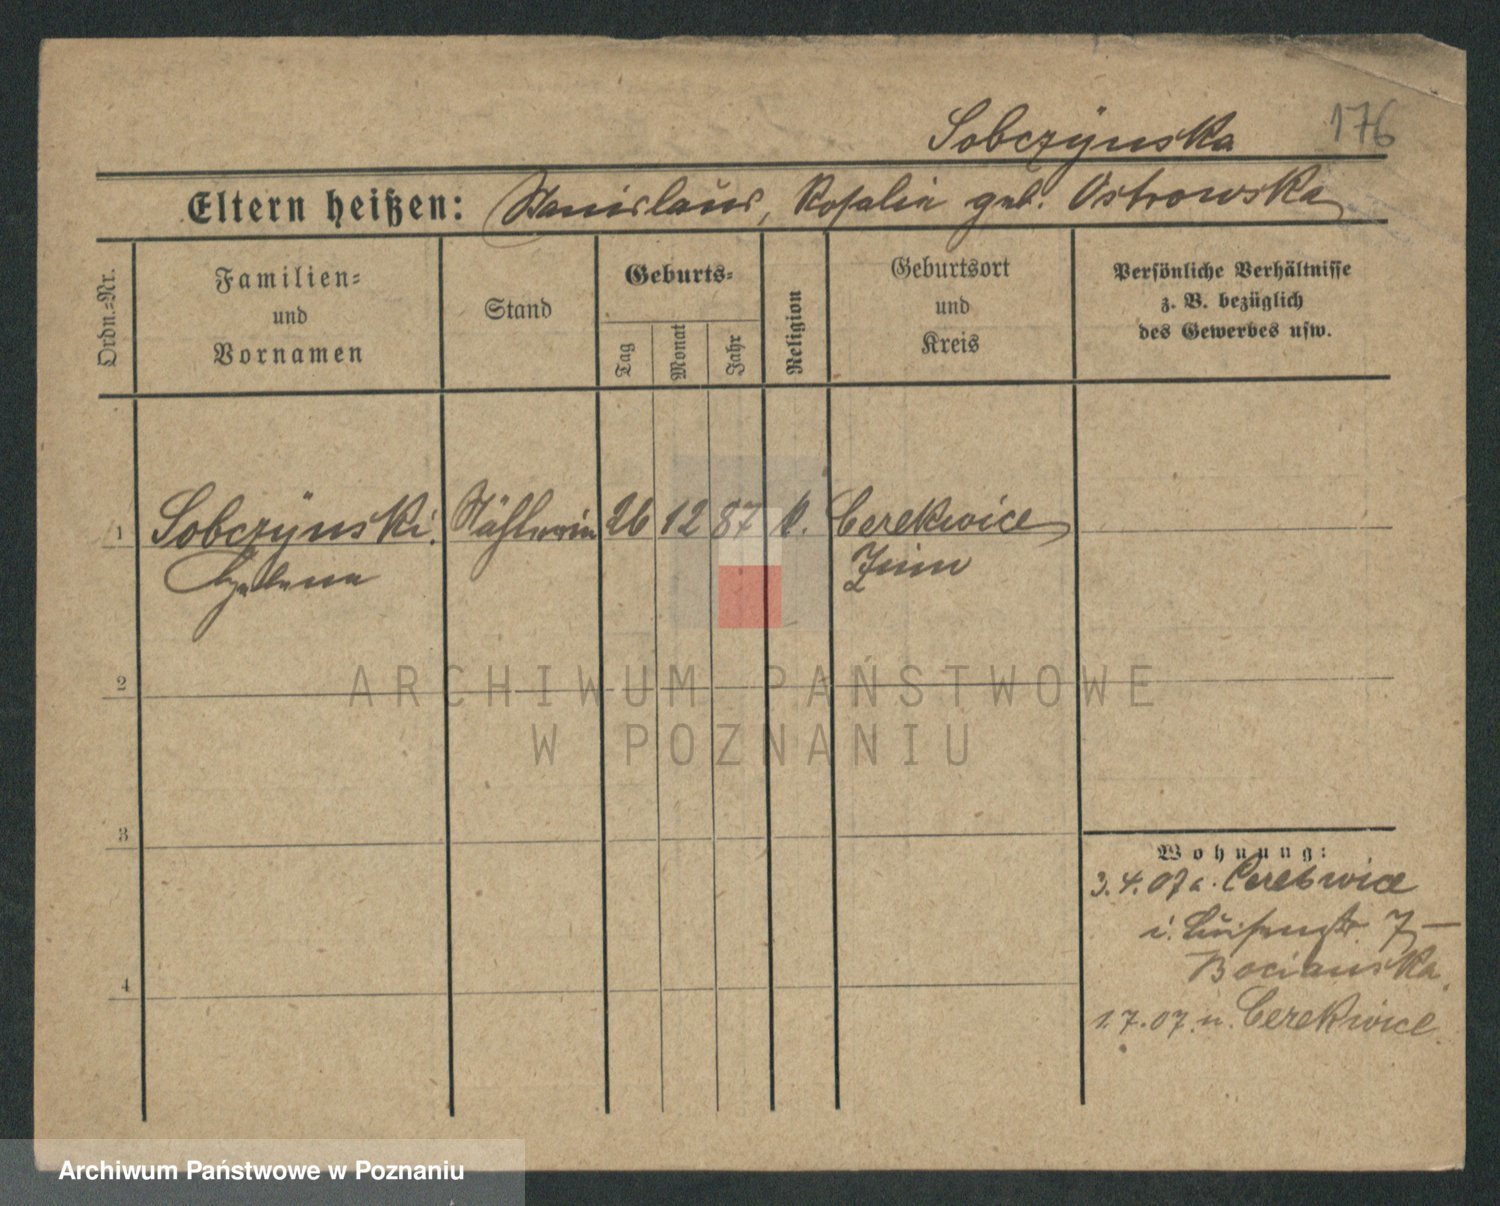 Sobczÿnska 176
Eltern heißen: Stanislaus, Rosalia geb. Ostrowska
Ordn.-Nr.
Familien-
und
Vornamen
Stand
Geburts-
Tag
Monat
Jahr
Religion
Geburtsort
und
Kreis
Persönliche Verhältnisse
z. B. bezüglich
des Gewerbes usw.
1 Sobczÿnski. Näherin 26 12 87 k. Cerekwice
Znin
ARCHIWUM PAŃSTWOWE
W POZNANIU
2
3
4
Wohnung:
3.4.07 a. Cerekwice
i. Luisenstr 7
Bocianska
1.7.07. n. Cerekwice
Archiwum Państwowe w Poznaniu